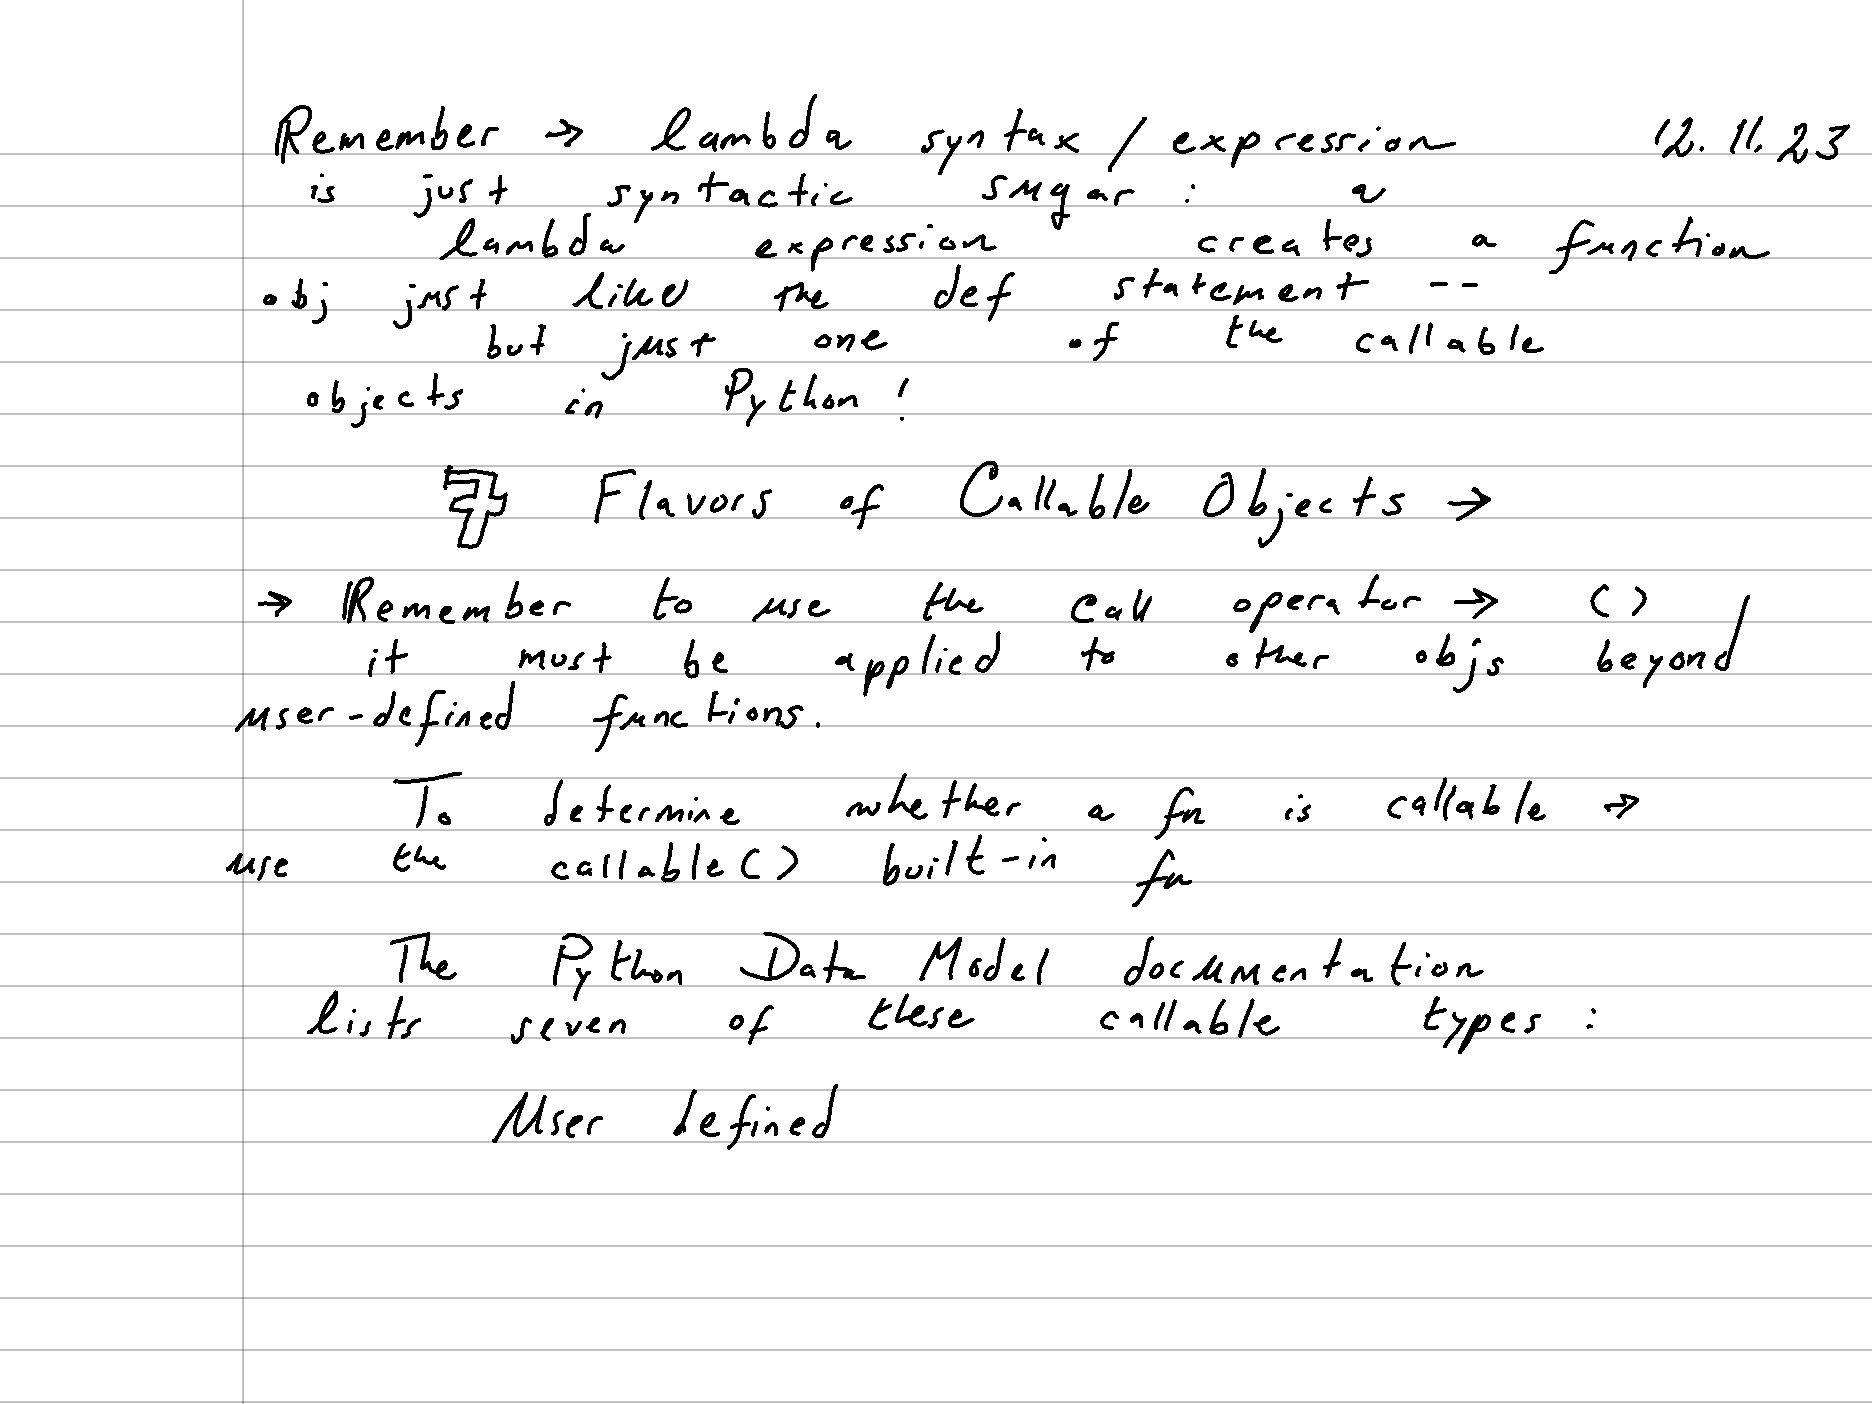 Remember → lambda syntax / expression 12.11.23
is just syntactic sugar : a
lambda expression creates a function
obj just like the def statement --
but just one of the callable
objects in Python!
7 Flavors of Callable Objects →
→ Remember to use the call operator → ()
it must be applied to other objs beyond
user-defined functions.
To determine whether a fn is callable →
use the callable() built-in fn
The Python Data Model documentation
lists seven of these callable types :
User defined